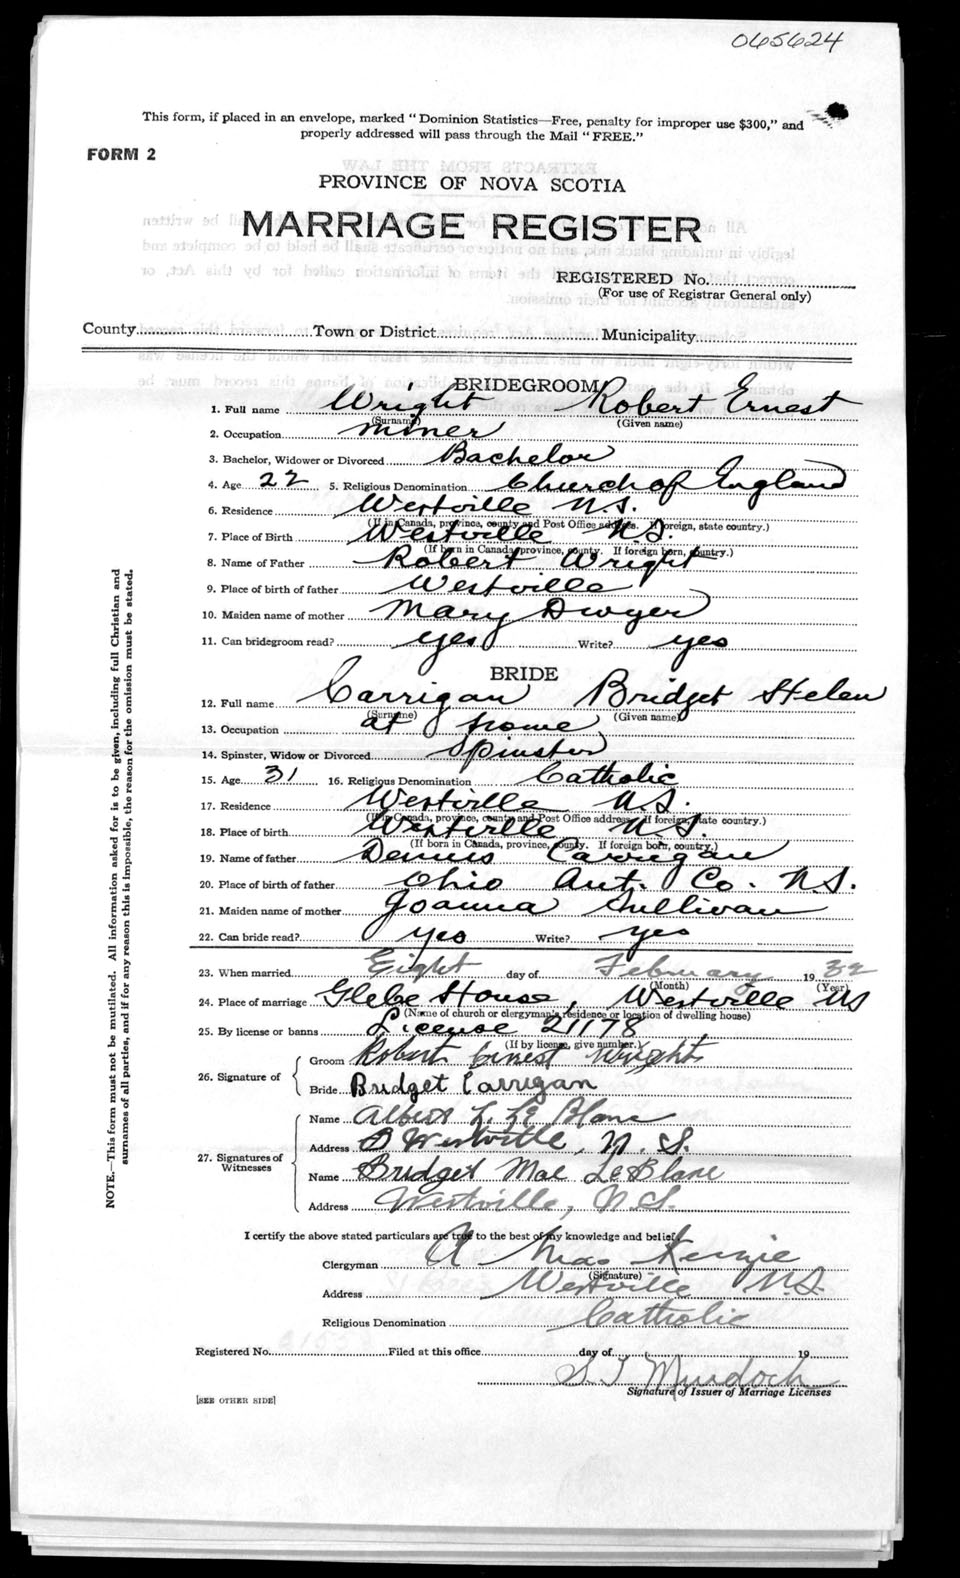 065624
This form, if placed in an envelope, marked "Dominion Statistics—Free, penalty for improper use $300," and
properly addressed will pass through the Mail "FREE."
FORM 2
PROVINCE OF NOVA SCOTIA
MARRIAGE REGISTER
REGISTERED No.
(For use of Registrar General only)
County Town or District Municipality
BRIDEGROOM
1. Full name Wright Robert Ernest
(Surname) (Given name)
2. Occupation miner
3. Bachelor, Widower or Divorced Bachelor
4. Age 22 5. Religious Denomination Church of England
6. Residence Westville N.S.
(If in Canada, province, county and Post Office address. If foreign, state country.)
7. Place of Birth Westville N.S.
(If born in Canada, province, county. If foreign born, country.)
8. Name of Father Robert Wright
9. Place of birth of father Westville
10. Maiden name of mother Mary Dwyer
11. Can bridegroom read? yes Write? yes
BRIDE
12. Full name Carrigan Bridget Helen
(Surname) (Given name)
13. Occupation at home
14. Spinster, Widow or Divorced Spinster
15. Age 31 16. Religious Denomination Catholic
17. Residence Westville N.S.
(If in Canada, province, county and Post Office address. If foreign, state country.)
18. Place of birth Westville N.S.
(If born in Canada, province, county. If foreign born, country.)
19. Name of father Dennis Carrigan
20. Place of birth of father Ohio Ant. Co. N.S.
21. Maiden name of mother Joanna Sullivan
22. Can bride read? yes Write? yes
23. When married Eight day of February 1932
(Month) (Year)
24. Place of marriage Glebe House, Westville NS
(Name of church or clergyman's residence or location of dwelling house)
25. By license or banns License 21178
(If by license, give number.)
26. Signature of Groom Robert Ernest Wright
Bride Bridget Carrigan
27. Signatures of Witnesses Name Albert L. LeBlanc
Address Westville, N.S.
Name Bridget Mae LeBlanc
Address Westville, N.S.
I certify the above stated particulars are true to the best of my knowledge and belief.
Clergyman A Kenzie
(Signature)
Address Westville N.S.
Religious Denomination Catholic
Registered No. Filed at this office day of 19
Murdoch
Signature of Issuer of Marriage Licenses
[SEE OTHER SIDE]
NOTE.—This form must not be mutilated. All information asked for is to be given, including full Christian and
surnames of all parties, and if for any reason this is impossible, the reason for the omission must be stated.